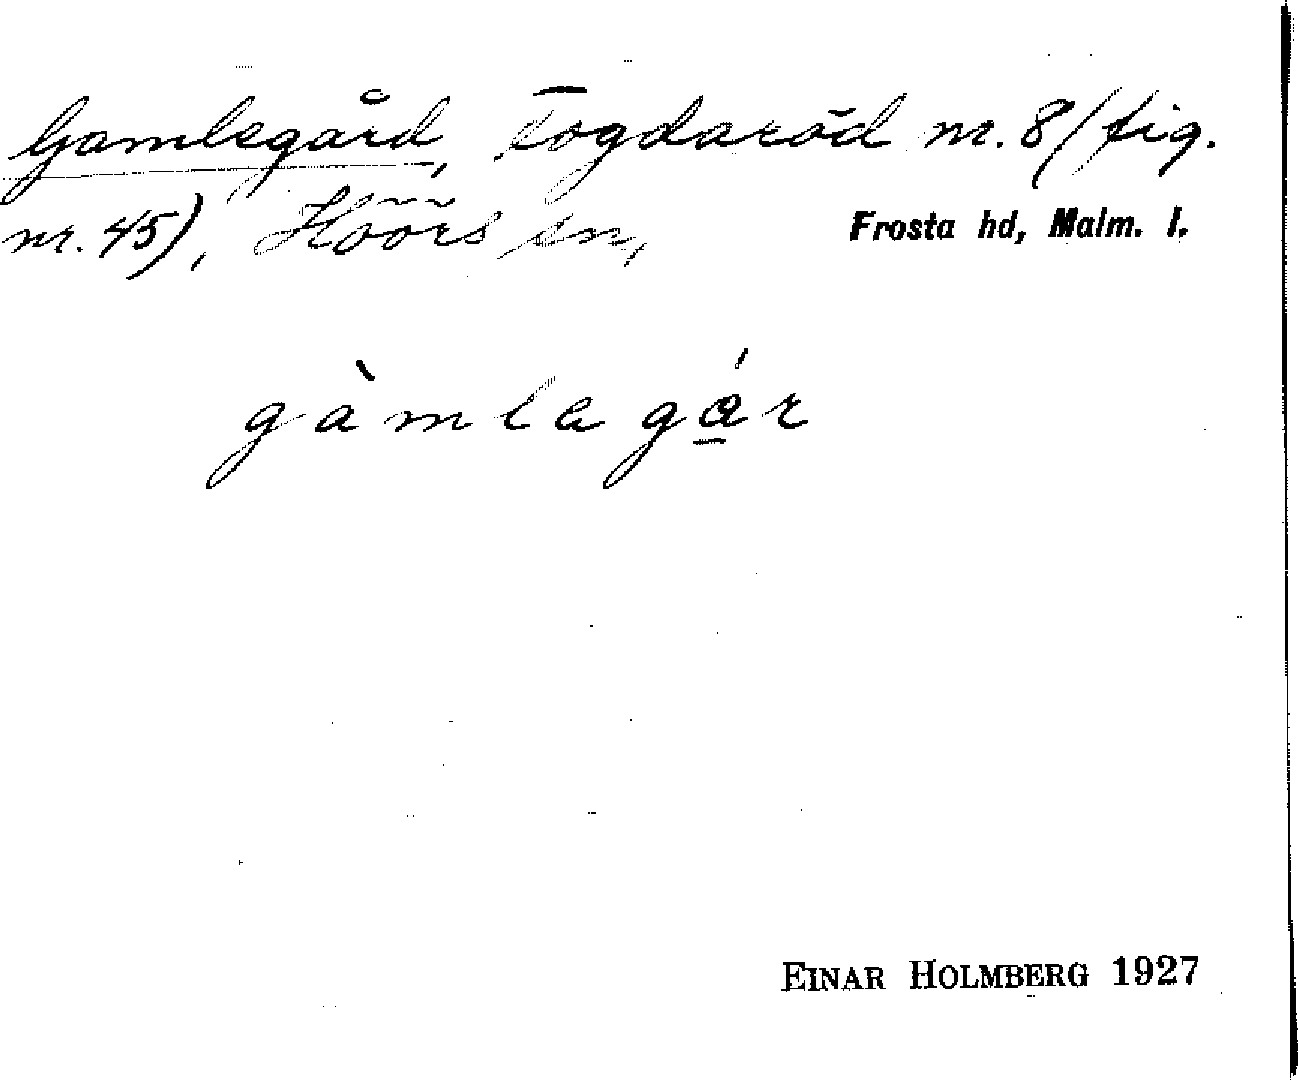 Gamlegård, Togdaröd nr. 8 (fig.
nr. 45), Höörs sn, Frosta hd, Malm. l.
gàmlagá̱r
EINAR HOLMBERG 1927